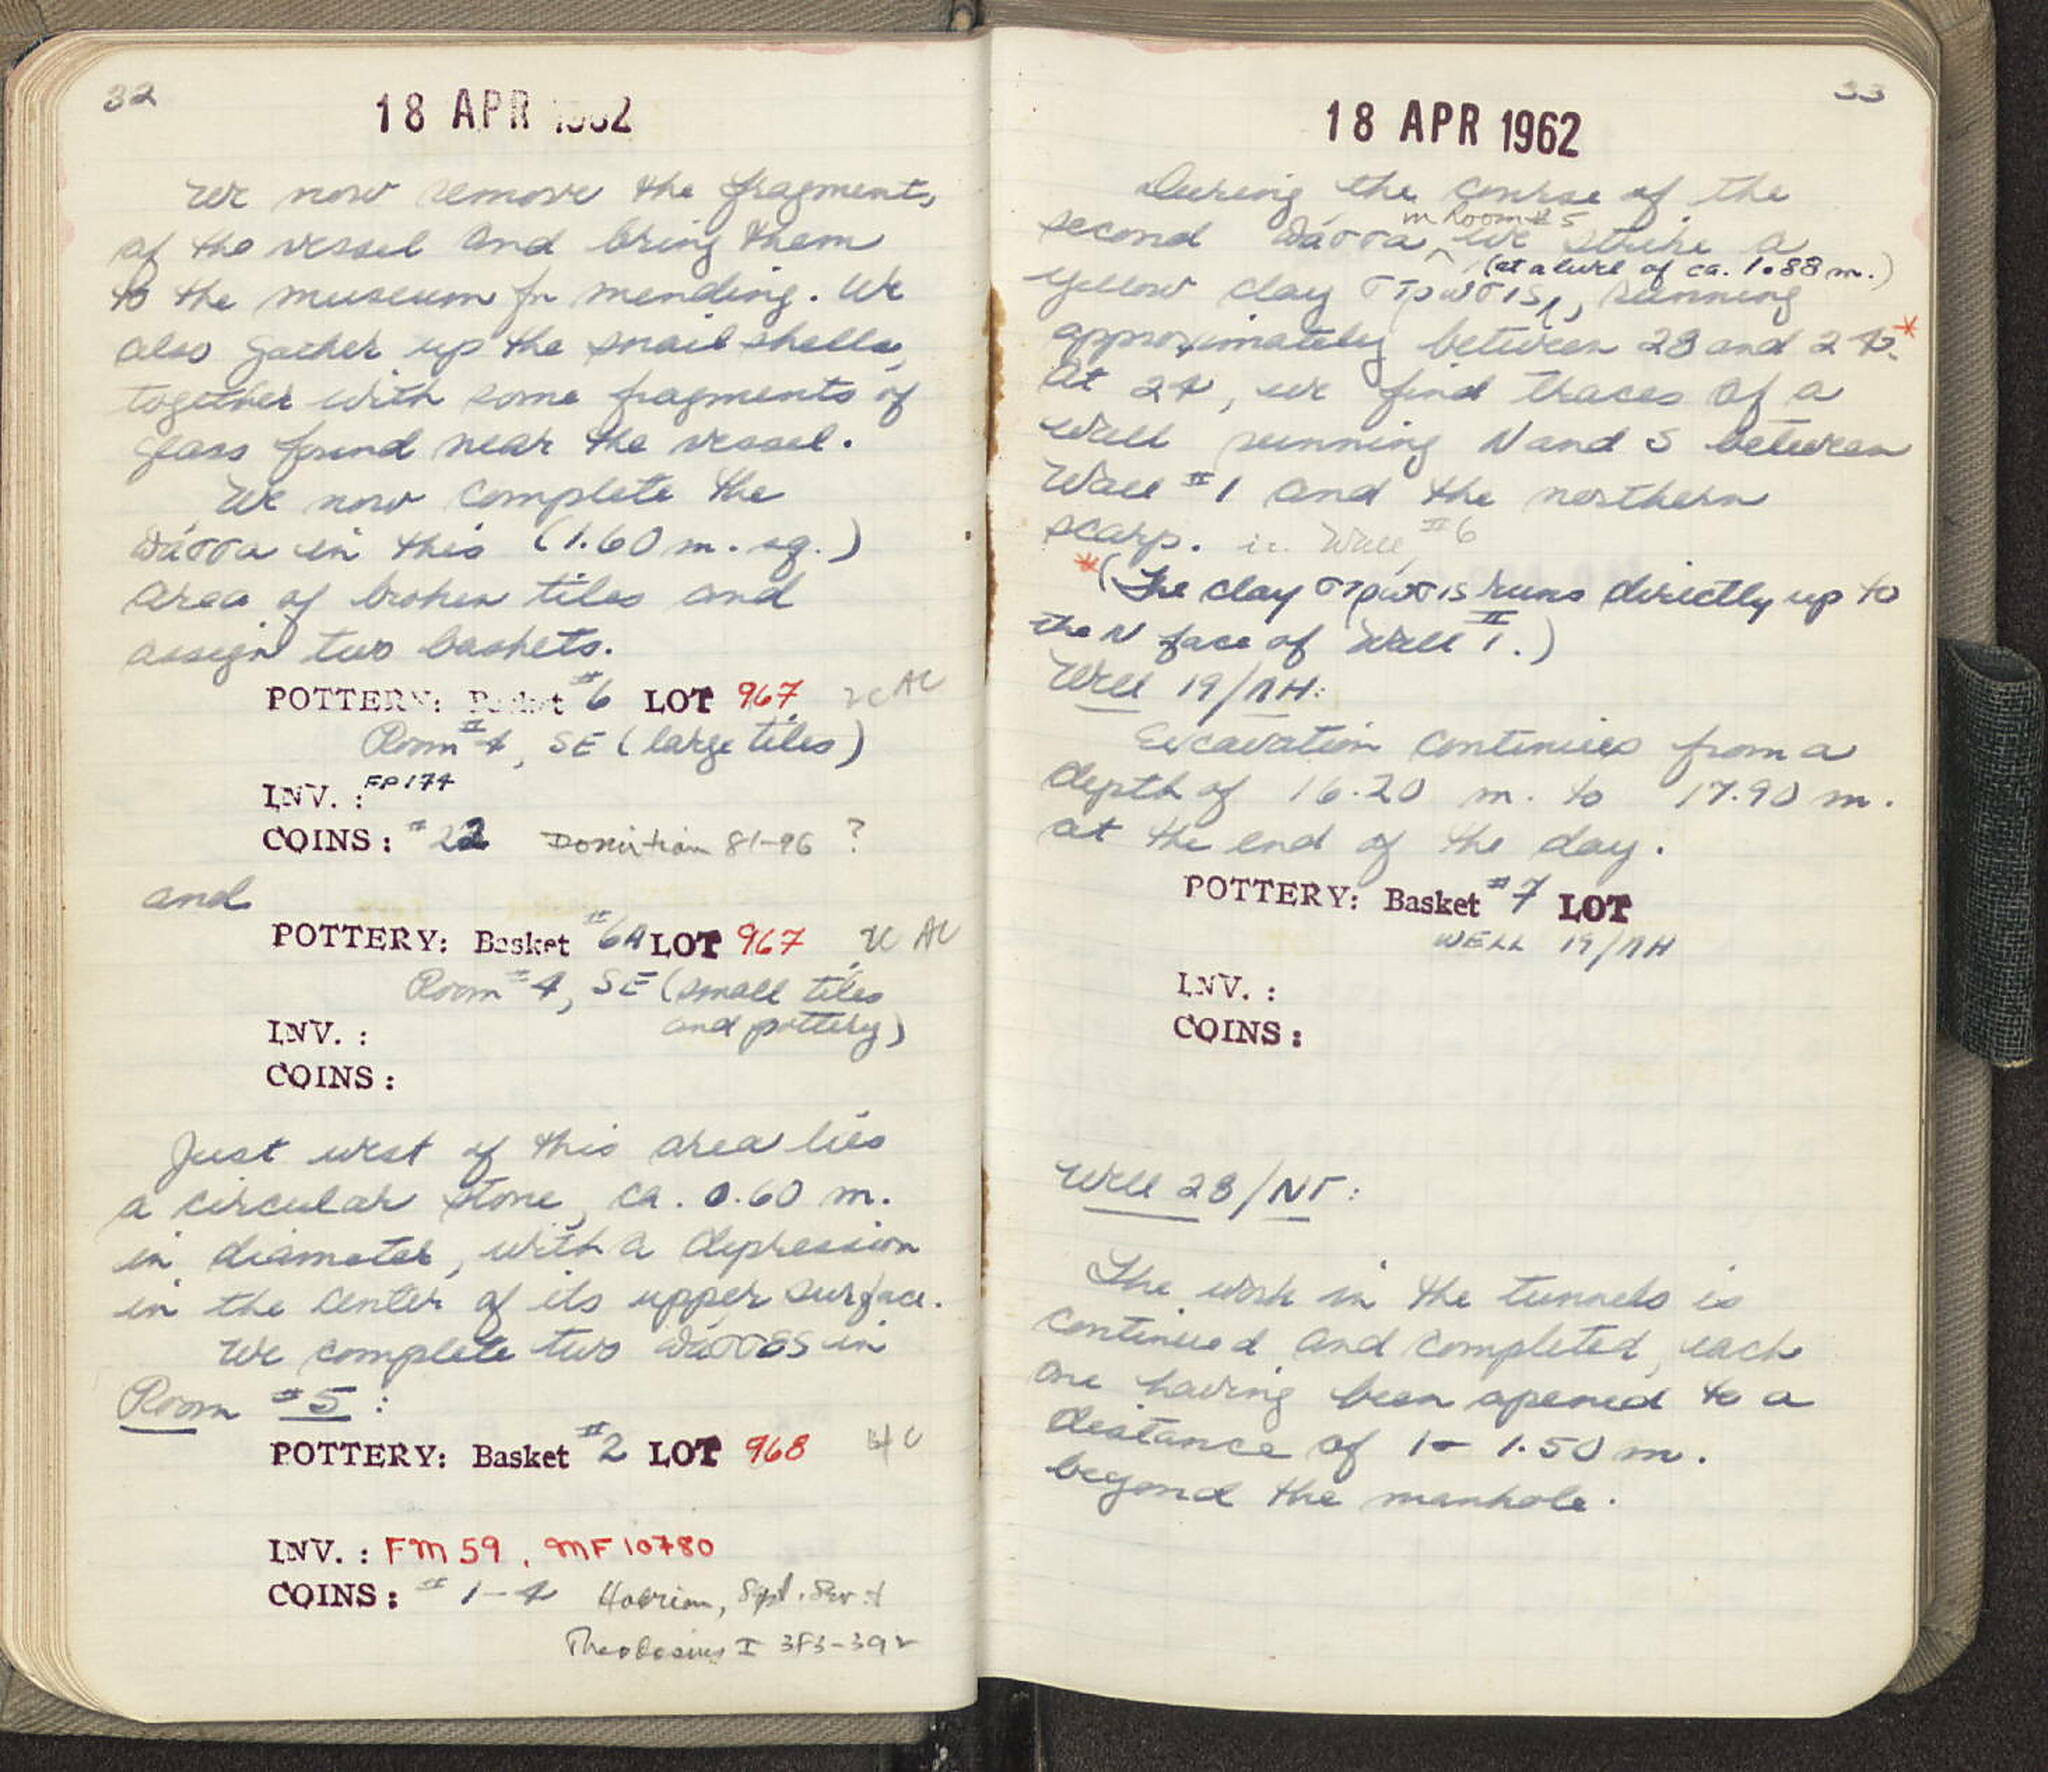 32
18 APR 1962
We now remove the fragments
of the vessel and bring them
to the museum for mending. We
also gather up the snail shells,
together with some fragments of
glass found near the vessel.
We now complete the
πάσσα in this (1.60 m. sq.)
area of broken tiles and
assign two baskets.
POTTERY: Basket #6 LOT 967
Room #4, SE (large tiles)
INV.: FP174
COINS: #22 Domitian 81-96 ?
and
POTTERY: Basket #6A LOT 967
Room #4, SE (small tiles
and pottery)
INV.:
COINS:
Just west of this area lies
a circular stone, ca. 0.60 m.
in diameter, with a depression
in the center of its upper surface.
We complete two πάσσες in
Room #5:
POTTERY: Basket #2 LOT 968
INV.: FM 59, MF 10780
COINS: #1-4 Hadrian, Sept. Sev.
Theodosius I 383-392
33
18 APR 1962
During the course of the
in Room #5
second πάσσα we strike a
(at a level of ca. 1.88 m.)
yellow clay στρῶσις, running
approximately between 23 and 24.*
At 24, we find traces of a
wall running N and S between
Wall #1 and the northern
scarp. i.e. Wall #6
*(The clay στρῶσις runs directly up to
the N face of Wall #1.)
Well 19/ΛΗ:
Excavation continues from a
depth of 16.20 m. to 17.90 m.
at the end of the day.
POTTERY: Basket #7 LOT
WELL 19/ΛΗ
INV.:
COINS:
Well 28/ΝΓ:
The work in the tunnels is
continued and completed, each
one having been opened to a
distance of 1 - 1.50 m.
beyond the manhole.